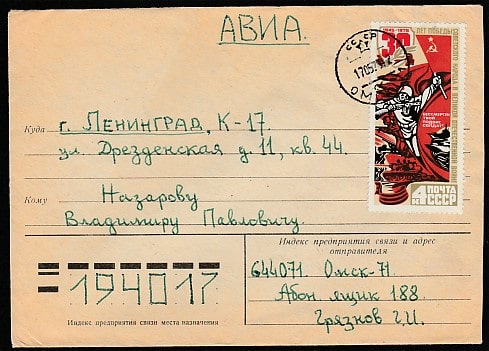 АВИА.
СССР
ОМСК
30
1945-1975
ЛЕТ ПОБЕДЫ
СОВЕТСКОГО НАРОДА В ВЕЛИКОЙ ОТЕЧЕСТВЕННОЙ ВОЙНЕ
БЕССМЕРТЕН
ТВОЙ
ПОДВИГ,
СОЛДАТ!
4 К
ПОЧТА
СССР
Куда
г. Ленинград, К-17.
ул. Дрезденская д. 11, кв. 44.
Кому
Назарову
Владимиру Павловичу.
Индекс предприятия связи и адрес
отправителя
644071. Омск-71
Абон. ящик 188.
Грязнов Г.И.
194017
Индекс предприятия связи места назначения